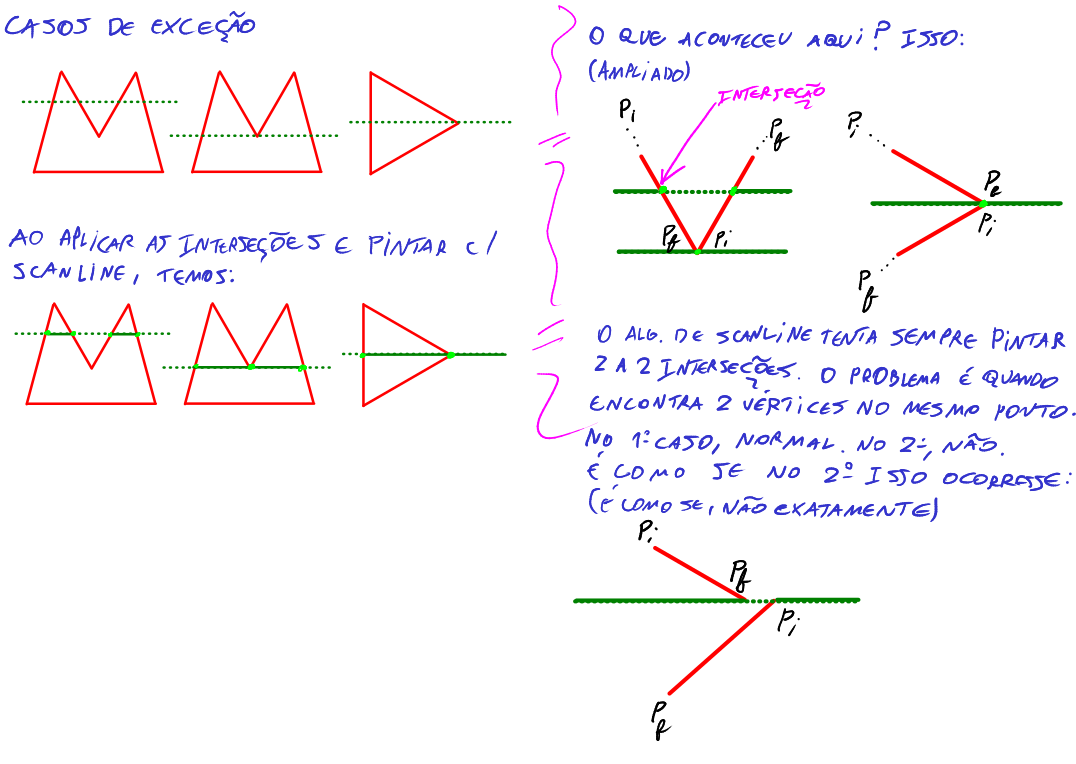 CASOS DE EXCEÇÃO
AO APLICAR AS INTERSEÇÕES E PINTAR C/
SCANLINE, TEMOS:
O QUE ACONTECEU AQUI? ISSO:
(AMPLIADO)
INTERSEÇÃO
Pi
Pf
Pf
Pi
Pi
Pf
Pi
Pf
O ALG. DE SCANLINE TENTA SEMPRE PINTAR
2 A 2 INTERSEÇÕES. O PROBLEMA É QUANDO
ENCONTRA 2 VÉRTICES NO MESMO PONTO.
NO 1º CASO, NORMAL. NO 2º, NÃO.
É COMO SE NO 2º ISSO OCORRESSE:
(É COMO SE, NÃO EXATAMENTE)
Pi
Pf
Pi
Pf